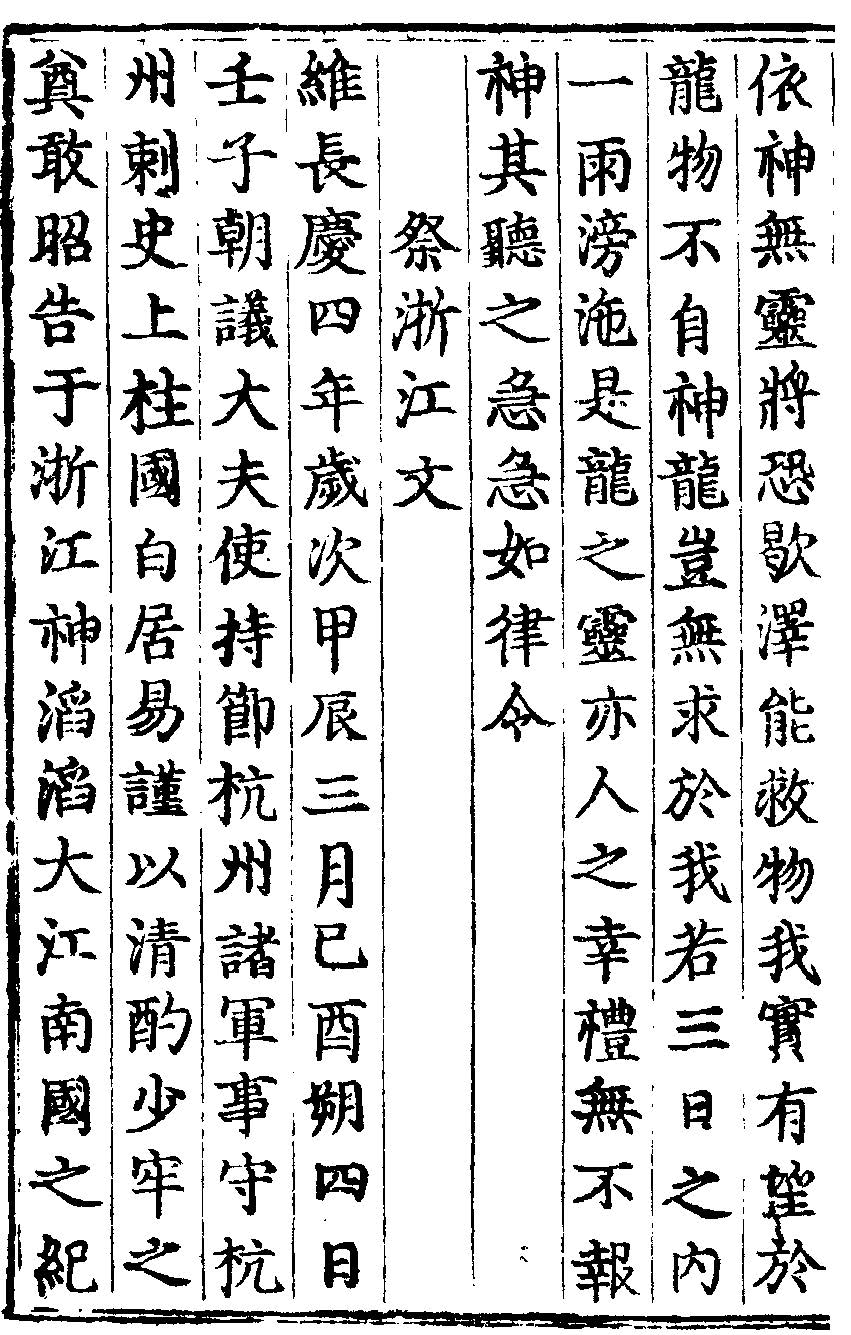 依神無靈將恐歇澤能救物我實有望於
龍物不自神龍豈無求於我若三日之內
一雨滂沲是龍之靈亦人之幸禮無不報
神其聽之急急如律令
祭浙江文
維長慶四年歲次甲辰三月已酉朔四日
壬子朝議大夫使持節杭州諸軍事守杭
州刺史上柱國白居易謹以清酌少牢之
奠敢昭告于浙江神滔滔大江南國之紀